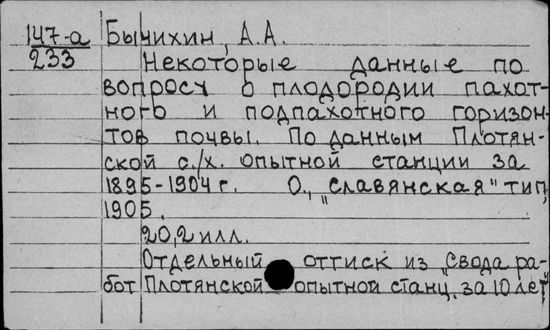 147-а Бычихин, А.А.
233 Некоторые данные по
вопросу о плодородии пахот-
ного и подпахотного горизон-
тов почвы. По данным Плотян-
ской с./х. опытной станции за
1895-1904 г. О., "Славянская" тип,
1905.
20,2 илл.
Отдельный оттиск из "Свода ра-
бот Плотянской опытной станц. за 10 лет"